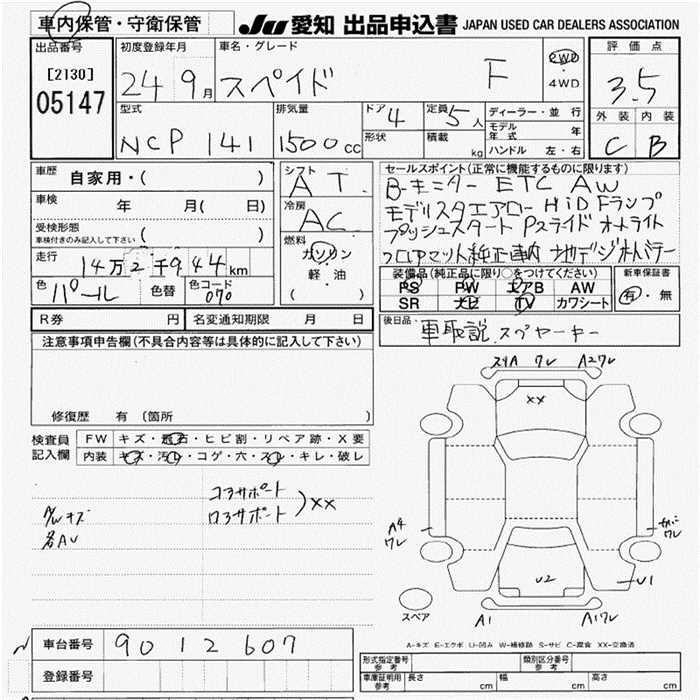 車内保管・守衛保管
JU 愛知 出品申込書 JAPAN USED CAR DEALERS ASSOCIATION
出品番号
[2130]
05147
初度登録年月
24 9月
車名・グレード
スペイド F
2WD
・
4WD
評価点
3.5
外装 内装
C B
型式
NCP 141
排気量
1500cc
ドア 4
形状
定員 5人
積載 kg
ディーラー・並行
モデル年式 年
ハンドル 左・右
車歴
自家用・( )
車検 年 月( 日)
受検形態
車検付きのみ記入して下さい ( )
走行
14万2千944km
色 パール 色替 色コード 070
シフト
AT
冷房
AC
燃料
ガソリン
軽・油
( )
セールスポイント(正常に機能するものに限ります)
Bモニター ETC AW
モデリスタエアロー HiD Fランプ
プッシュスタート Pスライド オートライト
フロアマット純正 地デジ
装備品(純正品に限り○をつけてください)
PS PW エアB AW
SR ナビ TV カワシート
新車保証書
有・無
R券 円 名変通知期限 月 日
後日品 車取説.スペヤーキー
注意事項申告欄(不具合内容等は具体的に記入して下さい)
修復歴 有 (箇所
検査員
記入欄
FW キズ・飛石・ヒビ割・リペア跡・X要
内装 キズ・汚レ・コゲ・穴・スレ・キレ・破レ
コアサポート
ロアサポート
)XX
各AU
スリA ワレ A2ワレ
XX
A4
ワレ
ワレ
U2
U1
スペア
A1 A1ワレ
A-キズ E-エクボ U-凹み W-補修跡 S-サビ C-腐食 XX-交換済
車台番号 9012607
登録番号
形式指定番号
参考
類別区分番号
参考
車庫証明用
参考
長さ cm 幅 cm 高さ cm